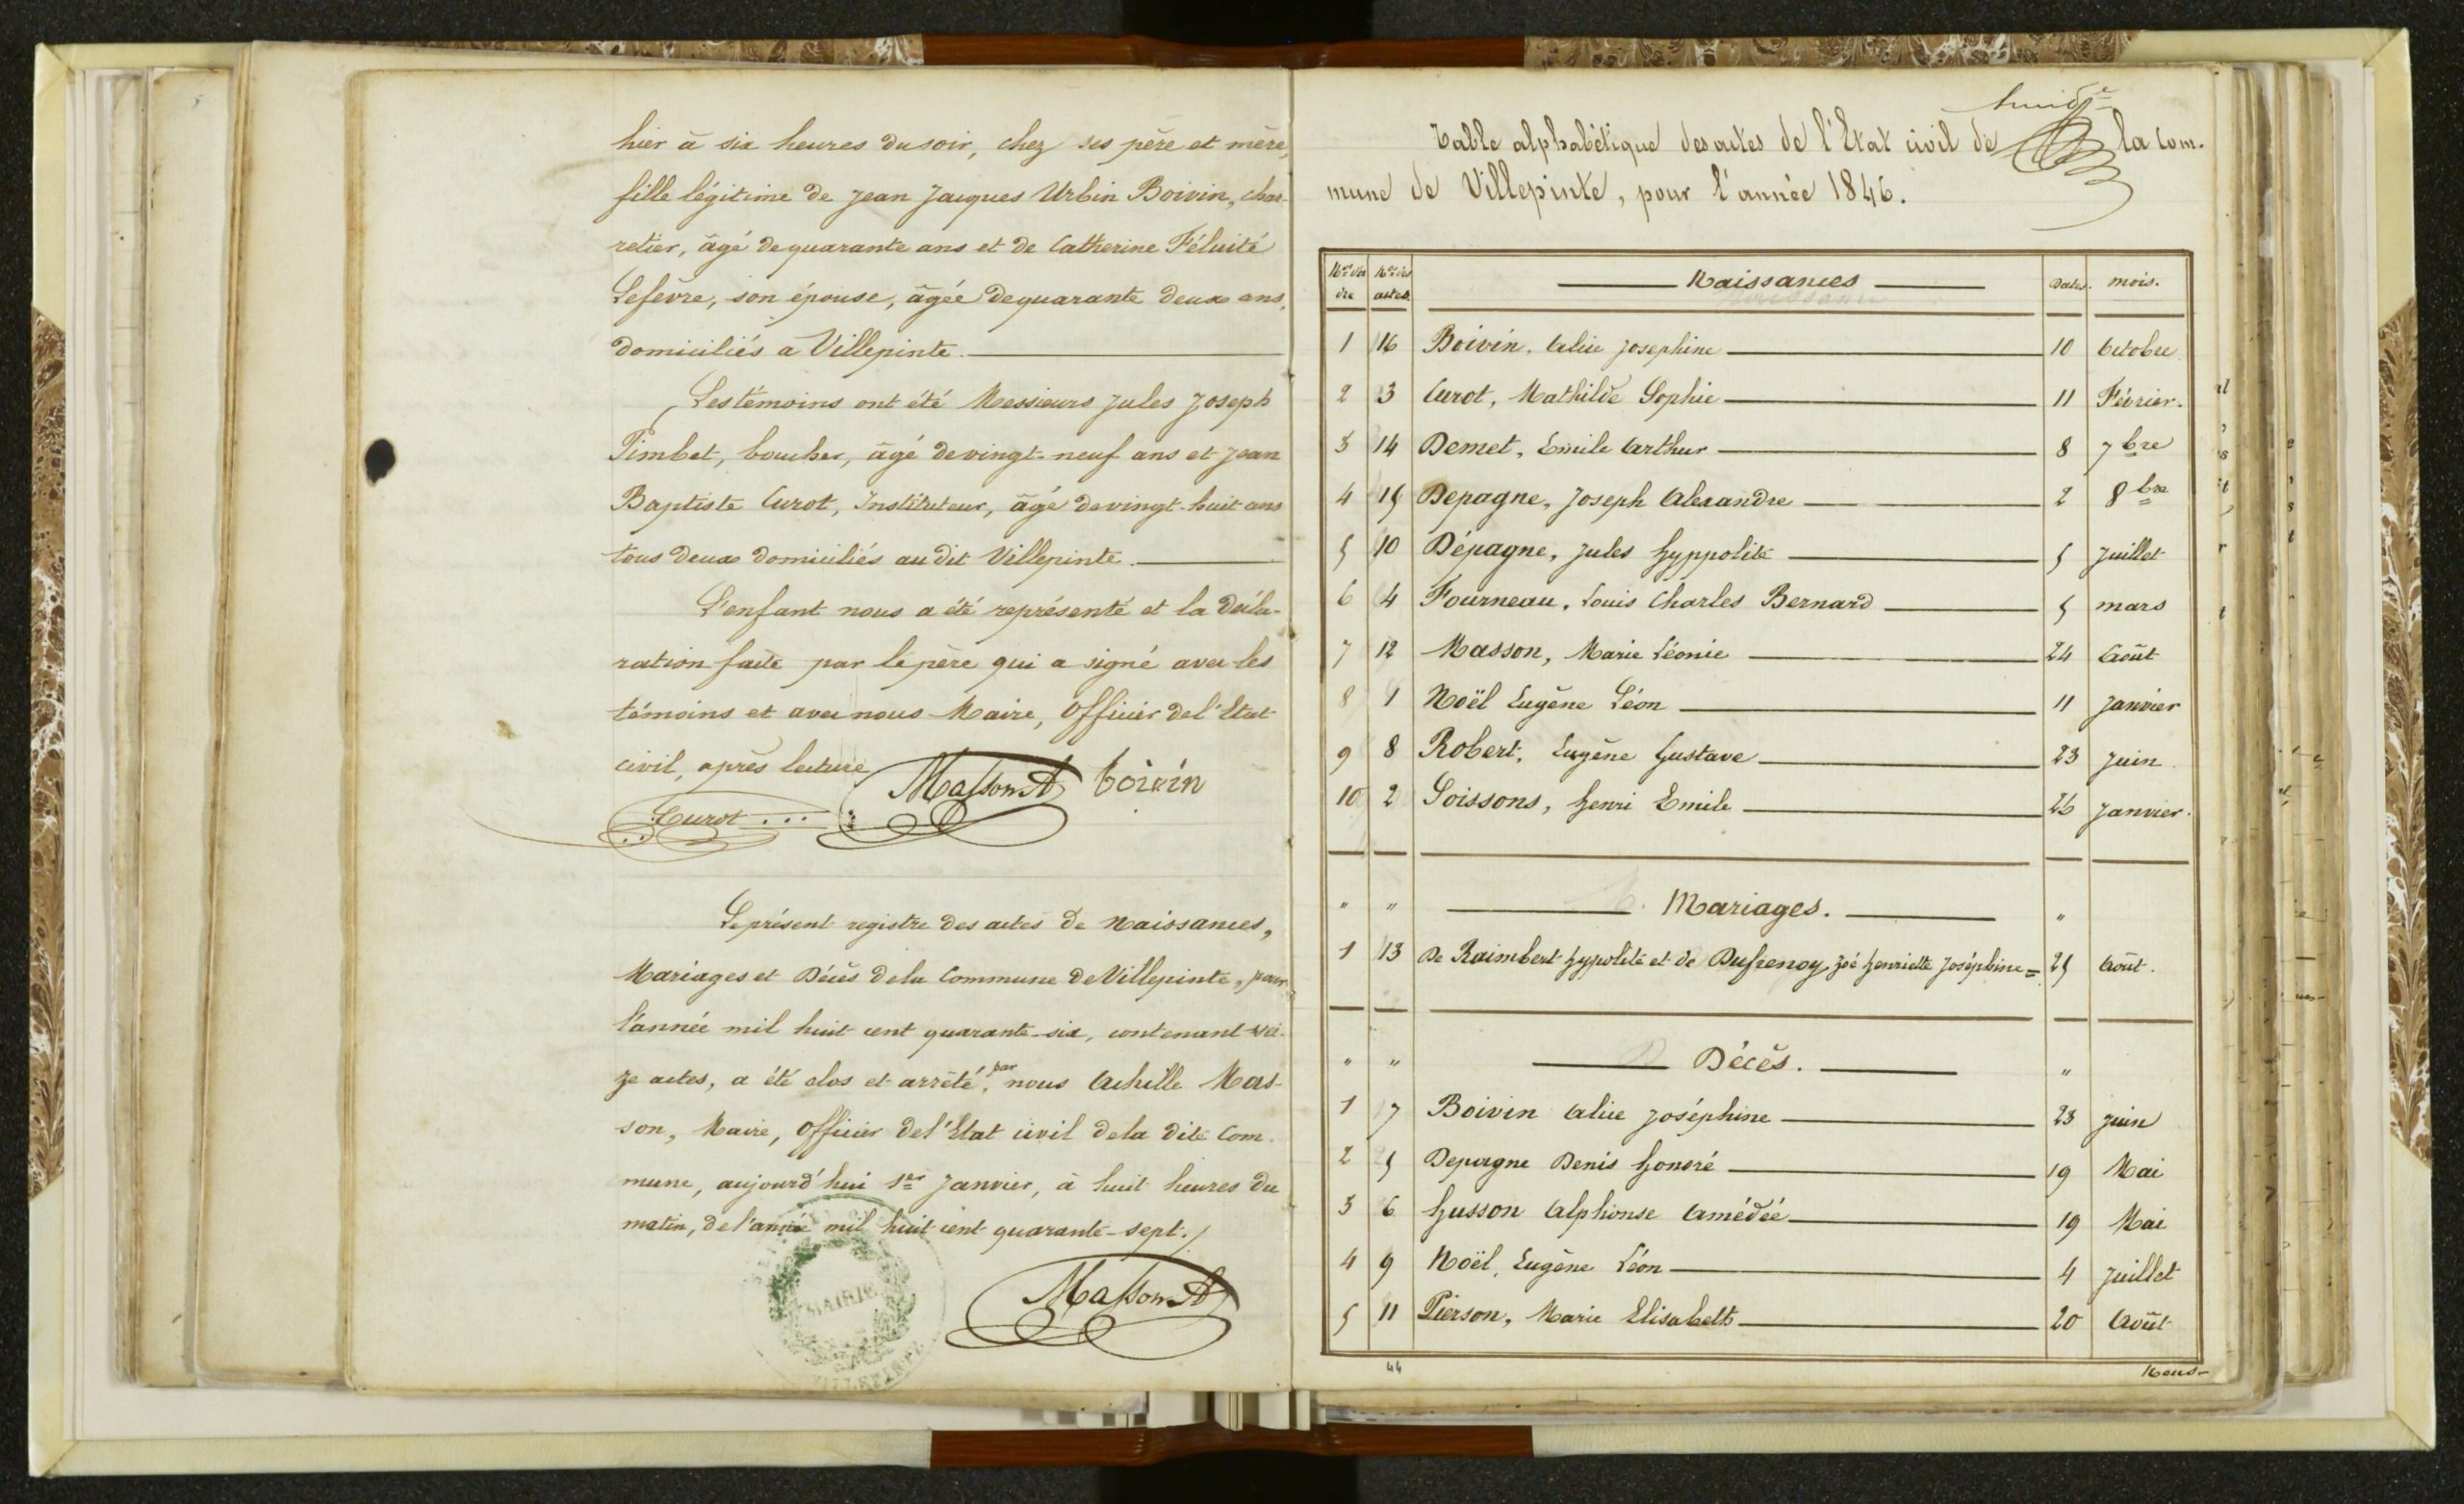 hier à six heures du soir, chez ses père et mère,
fille légitime de Jean Jacques Urbin Boivin, char-
retier, âgé de quarante ans et de Catherine Félicité
Lefèvre, son épouse, âgée de quarante deux ans,
domiciliés a Villepinte.
Les témoins ont été Messieurs Jules Joseph
Timbet, boucher, âgé de vingt-neuf ans et Jean
Baptiste Curot, Instituteur, âgé de vingt-huit ans
tous deux domiciliés au dit Villepinte.
L'enfant nous a été représenté et la décla-
ration faite par le père qui a signé avec les
témoins et avec nous Maire, Officier de l'Etat
civil, après lecture
Masson A boivin
Curot
Le présent registre des actes de Naissances,
Mariages et Décès de la Commune de Villepinte, pour
l'année mil huit cent quarante-six, contenant sei-
ze actes, a été clos et arrêté, par nous Achille Mas-
son, Maire, Officier de l'Etat civil de la dite Com-
mune, aujourd'hui 1er Janvier, à huit heures du
matin, de l'année mil huit cent quarante-sept.
MAIRIE
VILLEPINTE
Masson A
Table alphabétique des actes de l'Etat civil de la Com-
mune de Villepinte, pour l'année 1846.
Nos d'or dre Nos des actes Naissances Dates. mois.
1 16 Boivin, Alice Josephine 10 Octobre
2 3 Curot, Mathilde Sophie 11 Février.
3 14 Demet, Emile Arthur 8 7bre
4 15 Depagne, Joseph Alexandre 2 8bre
5 10 Dépagne, Jules Hyppolite 5 Juillet
6 4 Fourneau, Louis Charles Bernard 5 mars
7 12 Masson, Marie Léonie 24 Août
8 1 Noël Eugène Léon 11 Janvier
9 8 Robert, Eugène Gustave 23 Juin
10 2 Soissons, Henri Emile 26 Janvier.
" " Mariages. "
1 13 De Raimbert Hypolite et de Dufrenoy Zoé Henriette Joséphine= 25 Août.
" " Décès. "
1 7 Boivin Alice Joséphine 23 juin
2 5 Depagne Denis Honoré 19 Mai
3 6 Husson Alphonse Amédée 19 Mai
4 9 Noël, Eugène Léon 4 Juillet
5 11 Pierson, Marie Elisabeth 20 Août
44
Nous-